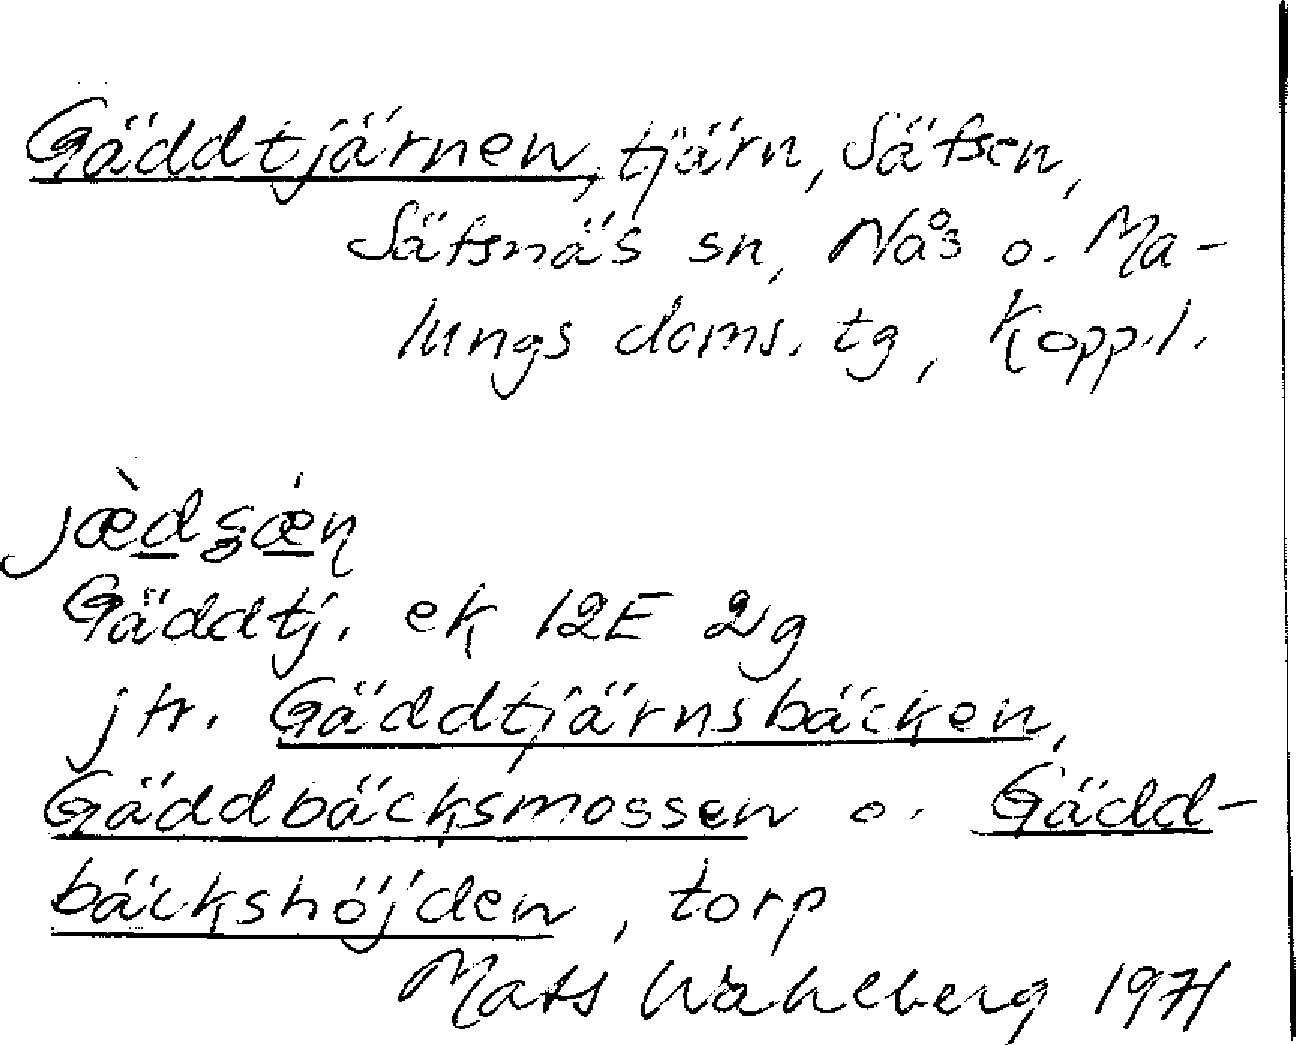 Gäddtjärnen, tjärn, Säfsen,
Säfsnäs sn, Nås o. Ma-
lungs doms. tg, Kopp.l.
Gäddtj. ek 12E 2g
jfr. Gäddtjärnsbäcken,
Gäddbäcksmossen o. Gädd-
bäckshöjden, torp
Mats Wahlberg 1971